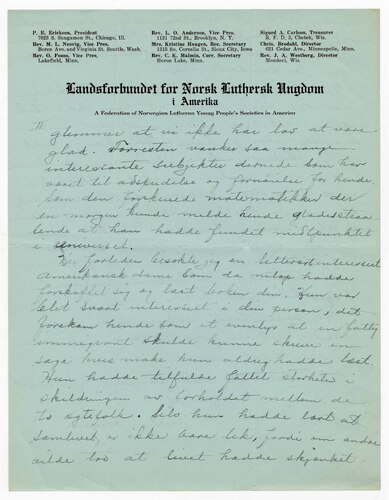 P. E. Erickson, President
7023 S. Sangamon St., Chicago, Ill.
Rev. M. L. Nesvig, Vice Pres.
Boren Ave. and Virginia St., Seattle, Wash.
Rev. O. Fosso, Vice Pres.
Lakefield, Minn.
Rev. L. O. Anderson, Vice Pres.
1151 72nd St., Brooklyn, N. Y.
Mrs. Kristine Haugen, Rec. Secretary
1315 So. Cornelia St., Sioux City, Iowa
Rev. C. K. Malmin, Cor. Secretary
Heron Lake, Minn.
Sigard A. Carlson, Treasurer
R. F. D. 2, Chetek, Wis.
Chris. Bredahl, Director
621 Cedar Ave., Minneapolis, Minn.
Rev. J. A. Westberg, Director
Mondovi, Wis.
Landsforbundet for Norsk Luthersk Ungdom
i Amerika
A Federation of Norwegian Lutheran Young People's Societies in America
II
glemmer at vi ikke har lov at være
glad. Forresten vanker saa mange
interessante subjekter dernede som har
vært til adspredelse og fornøielse for hende
som den matematikker der
en morgen kunde melde hende gladestraa
lende at han hadde fundet midtpunktet
i universet.
Her forleden besøkte jeg en interesert
amerikansk dame som da netop hadde
forskaffet sig og læst boken din. Hun var
blet svært interesert i din person, det
hende som et eventyr at en fattig
immigrant skulde kunne skrive en
saga hvis make hun aldrig hadde læst.
Hun hadde tilfulde fattet storheten i
skildringen av forholdet mellem de
to egtefolk. Selv hun hadde lært at
samlivet er ikke bare lek, fordi om andre
vilde tro at livet hadde skjænket